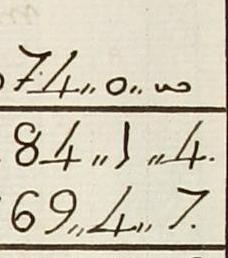 74 〃 0 〃 ∞
84 〃 1 〃 4.
69 〃 4 〃 7.